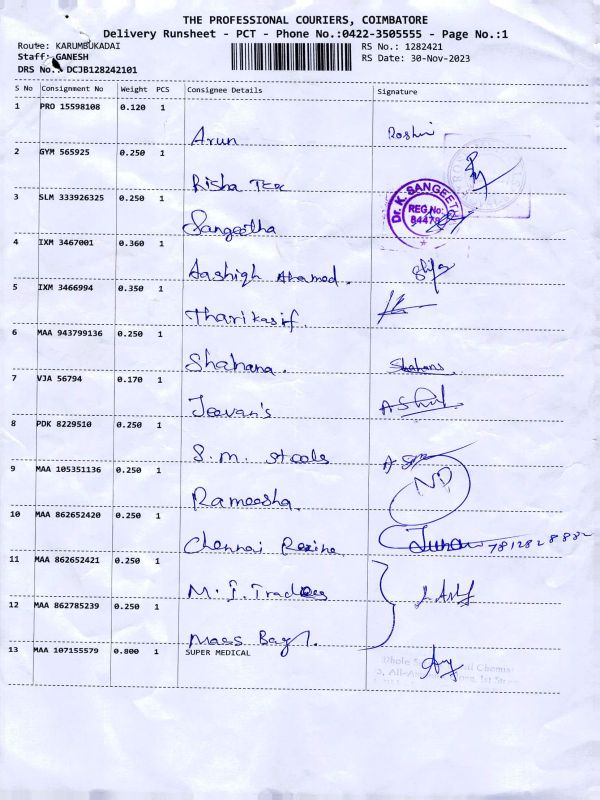 THE PROFESSIONAL COURIERS, COIMBATORE
Delivery Runsheet - PCT - Phone No.:0422-3505555 - Page No.:1
Route: KARUMBUKADAI RS No.: 1282421
Staff: GANESH RS Date: 30-Nov-2023
DRS No.: DCJB128242101
S No Consignment No Weight PCS Consignee Details Signature
1 PRO 15598108 0.120 1
Arun Roshni
2 GYM 565925 0.250 1
Risha Tex
3 SLM 333926325 0.250 1
Sangeetha Dr. K. SANGEETHA REG.No: 84478
4 IXM 3467001 0.360 1
Aashigh Ahamed.
5 IXM 3466994 0.350 1
Tharikasif.
6 MAA 943799136 0.250 1
Shahana. Shahana
7 VJA 56794 0.170 1
Jeevan's
8 PDK 8229510 0.250 1
S.M. Steels
9 MAA 105351136 0.250 1
Rameesha. ND
10 MAA 862652420 0.250 1
Chennai 7812828882
11 MAA 862652421 0.250 1
M.I. Traders
12 MAA 862785239 0.250 1
Maas
13 MAA 107155579 0.800 1 SUPER MEDICAL